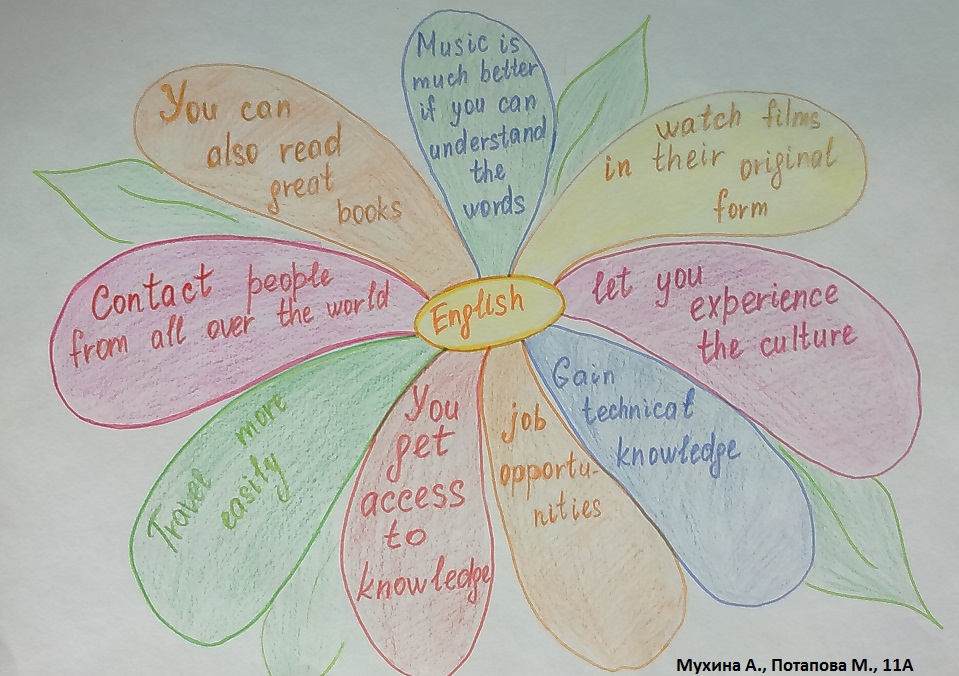 Music is
much better
if you can
understand
the
words
watch films
in their original
form
let you
experience
the culture
Gain
technical
knowledge
job
opportu-
nities
You
get
access
to
knowledge
Travel more
easily
Contact people
from all over the world
You can
also read
great
books
English
Мухина А., Потапова М., 11А